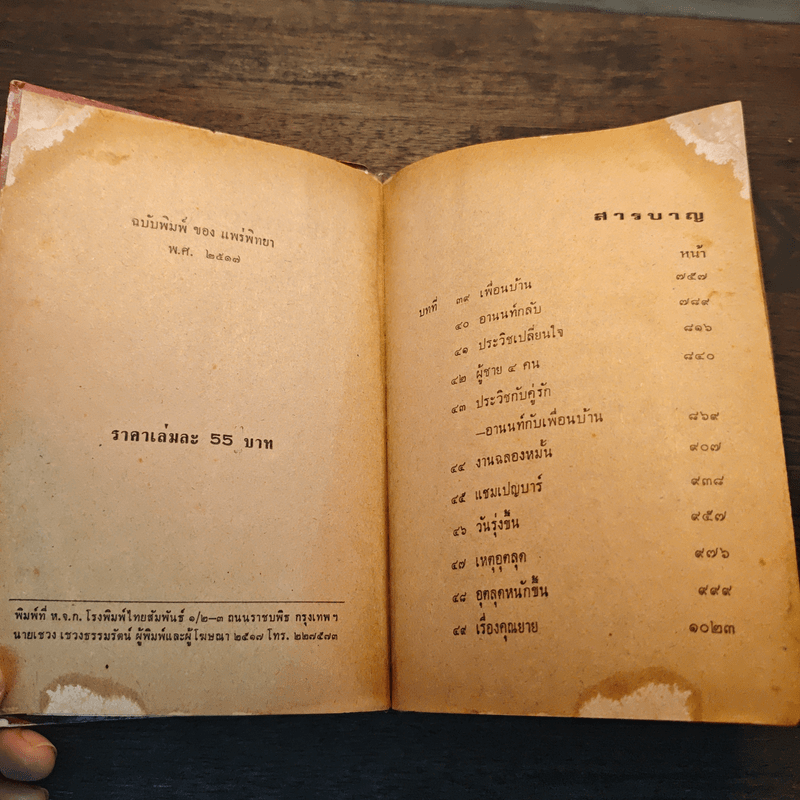 ฉบับพิมพ์ ของ แพร่พิทยา
พ.ศ. ๒๕๑๗
ราคาเล่มละ 55 บาท
พิมพ์ที่ ห.จ.ก. โรงพิมพ์ไทยสัมพันธ์ ๑/๒-๓ ถนนราชบพิธ กรุงเทพฯ
นายเชวง เชวงธรรมรัตน์ ผู้พิมพ์และผู้โฆษณา ๒๕๑๗ โทร. ๒๒๗๕๗๓
สารบาญ
หน้า
บทที่ ๓๙ เพื่อนบ้าน ๗๕๗
๔๐ อานนท์กลับ ๗๘๙
๔๑ ประวิชเปลี่ยนใจ ๘๑๖
๔๒ ผู้ชาย ๔ คน ๘๔๐
๔๓ ประวิชกับคู่รัก
—อานนท์กับเพื่อนบ้าน ๘๖๙
๔๔ งานฉลองหมั้น ๙๐๗
๔๕ แชมเปญบาร์ ๙๓๘
๔๖ วันรุ่งขึ้น ๙๕๗
๔๗ เหตุอุตลุด ๙๗๖
๔๘ อุตลุดหนักขึ้น ๙๙๙
๔๙ เรื่องคุณยาย ๑๐๒๓